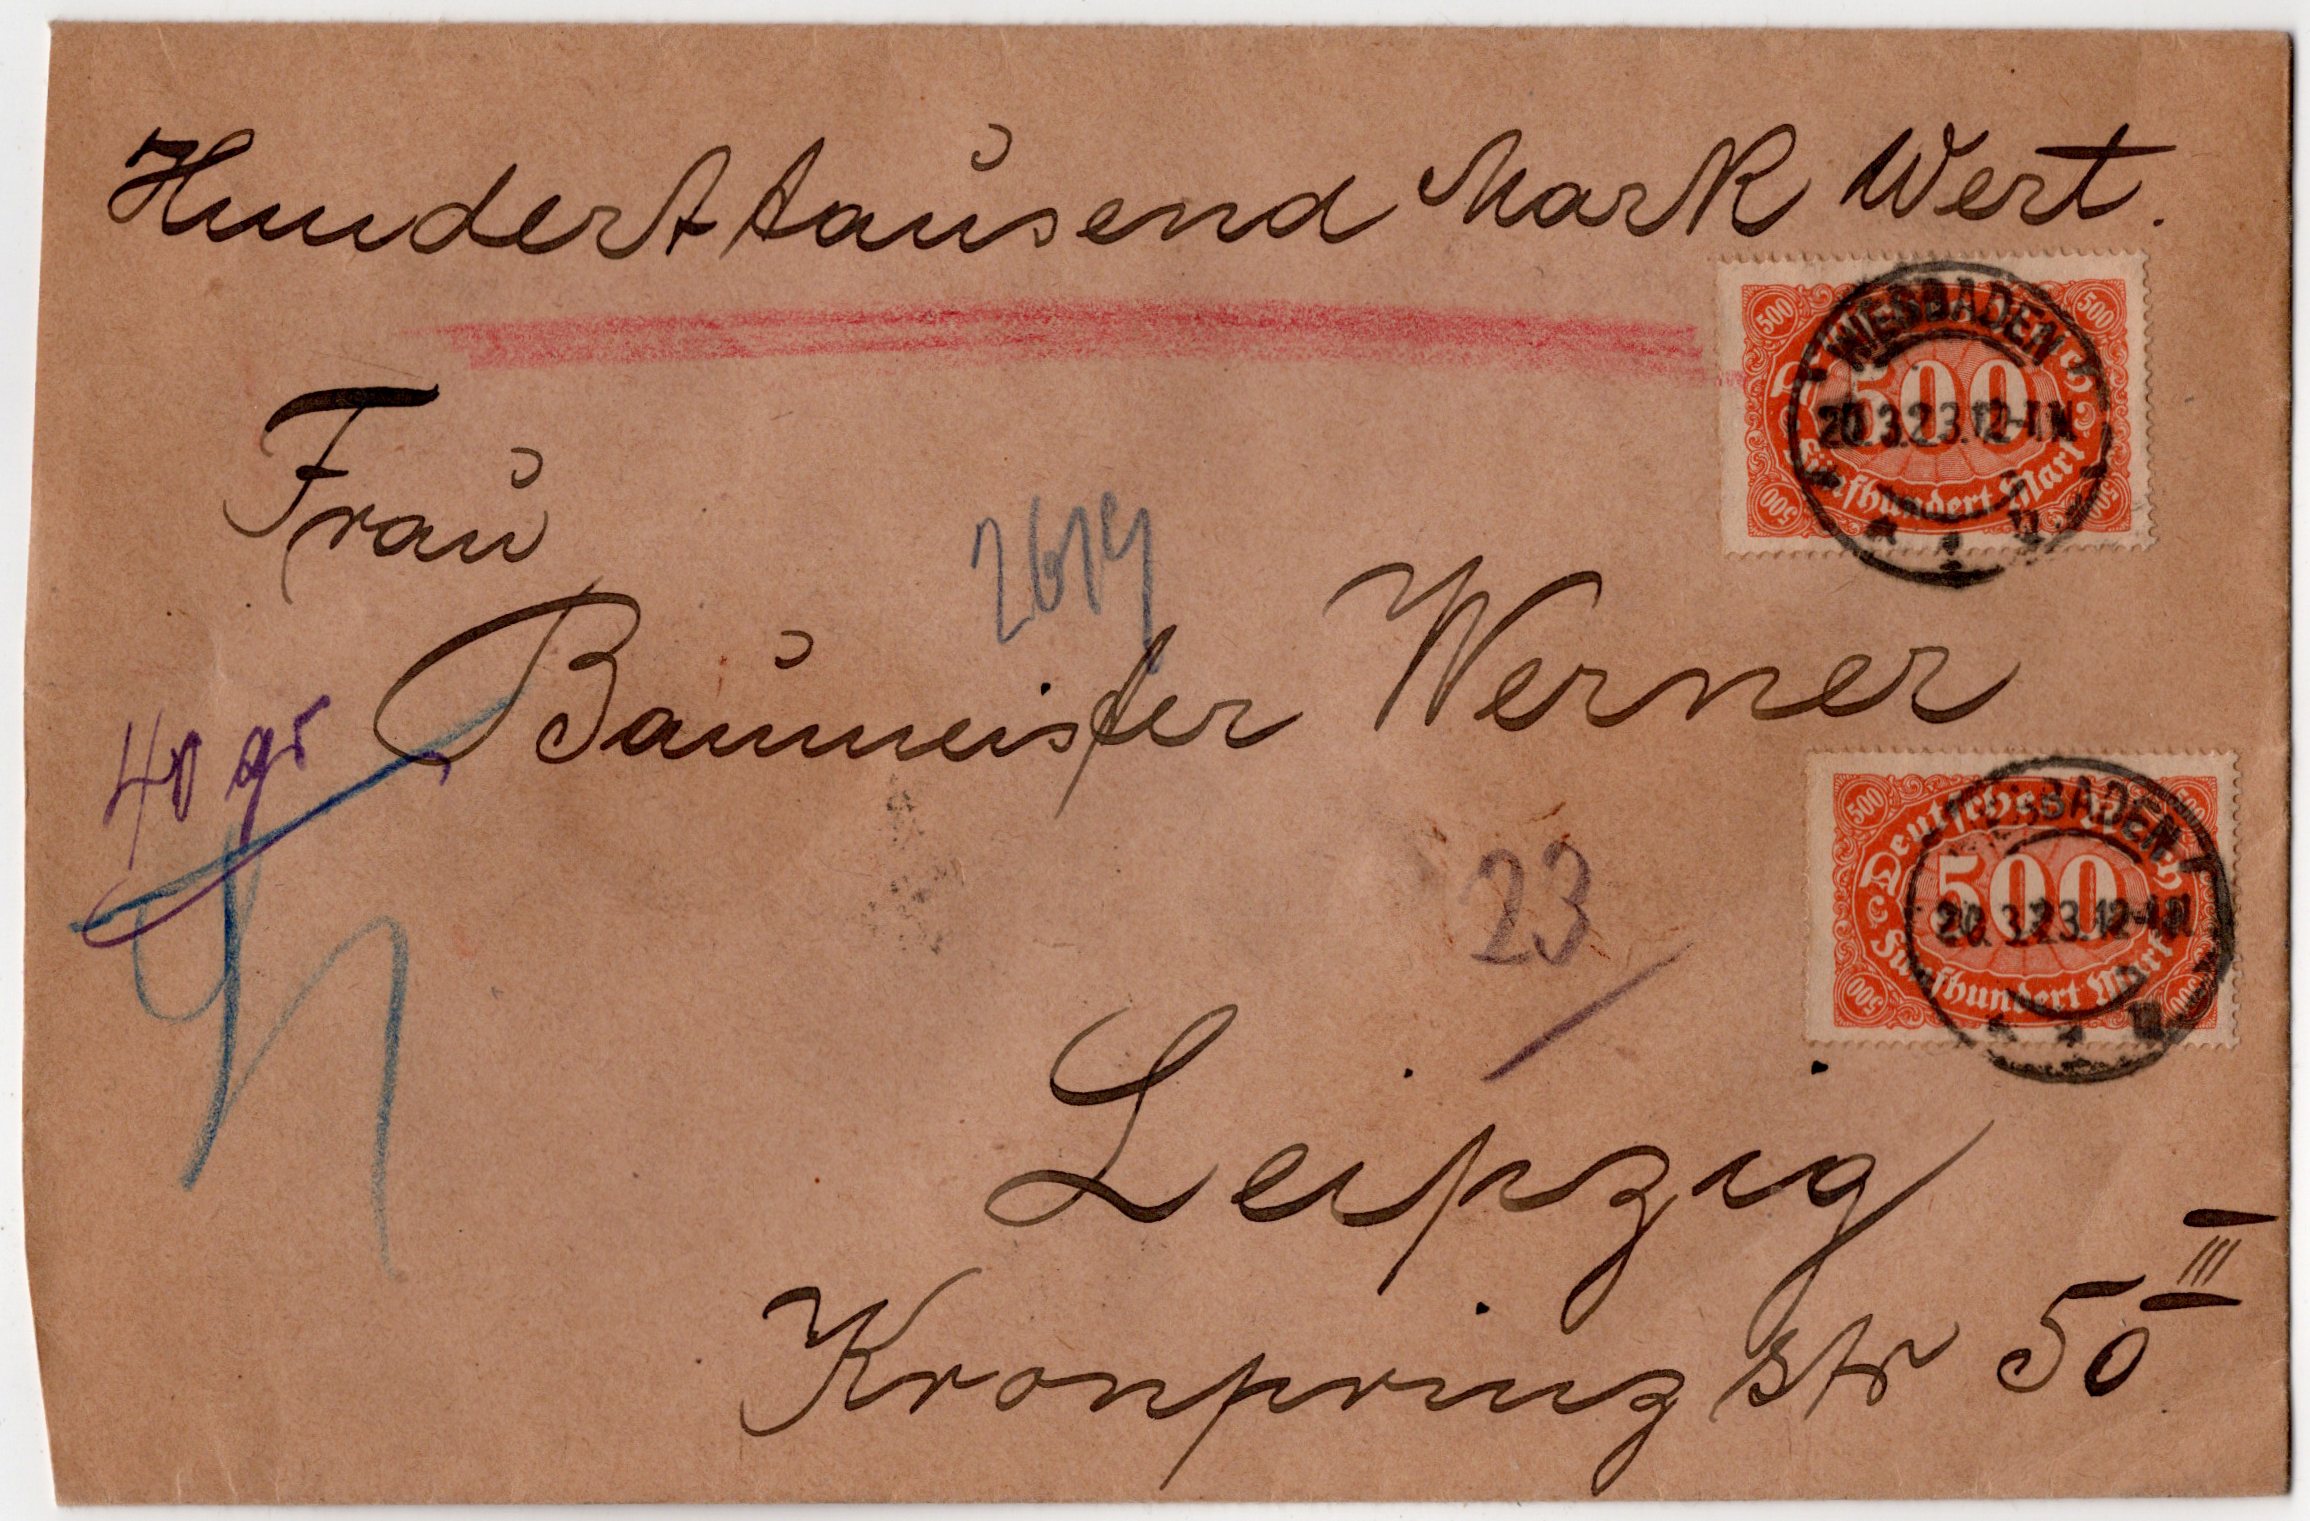 Hunderttausend Mark Wert.
500 500
WIESBADEN
500
20.3.23.12-1N.
Fünfhundert Mark
500 500
Frau
2619
Baumeister Werner
40 gr
500
Deutsches Reich
WIESBADEN 1
500
20.3.23.12-1N.
Fünfhundert Mark
500 500
23
Leipzig
Kronprinz str 50 III